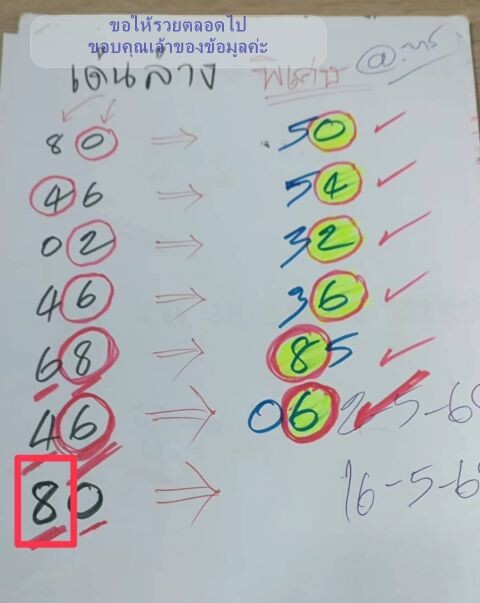 ขอให้รวยตลอดไป
ขอบคุณเจ้าของข้อมูลค่ะ
เด่นล่าง พิเศษ
80 → 50 ✓
46 → 54 ✓
02 → 32 ✓
46 → 36 ✓
68 → 85 ✓
46 → 06 ✓ 2-5-6
80 → 16-5-6